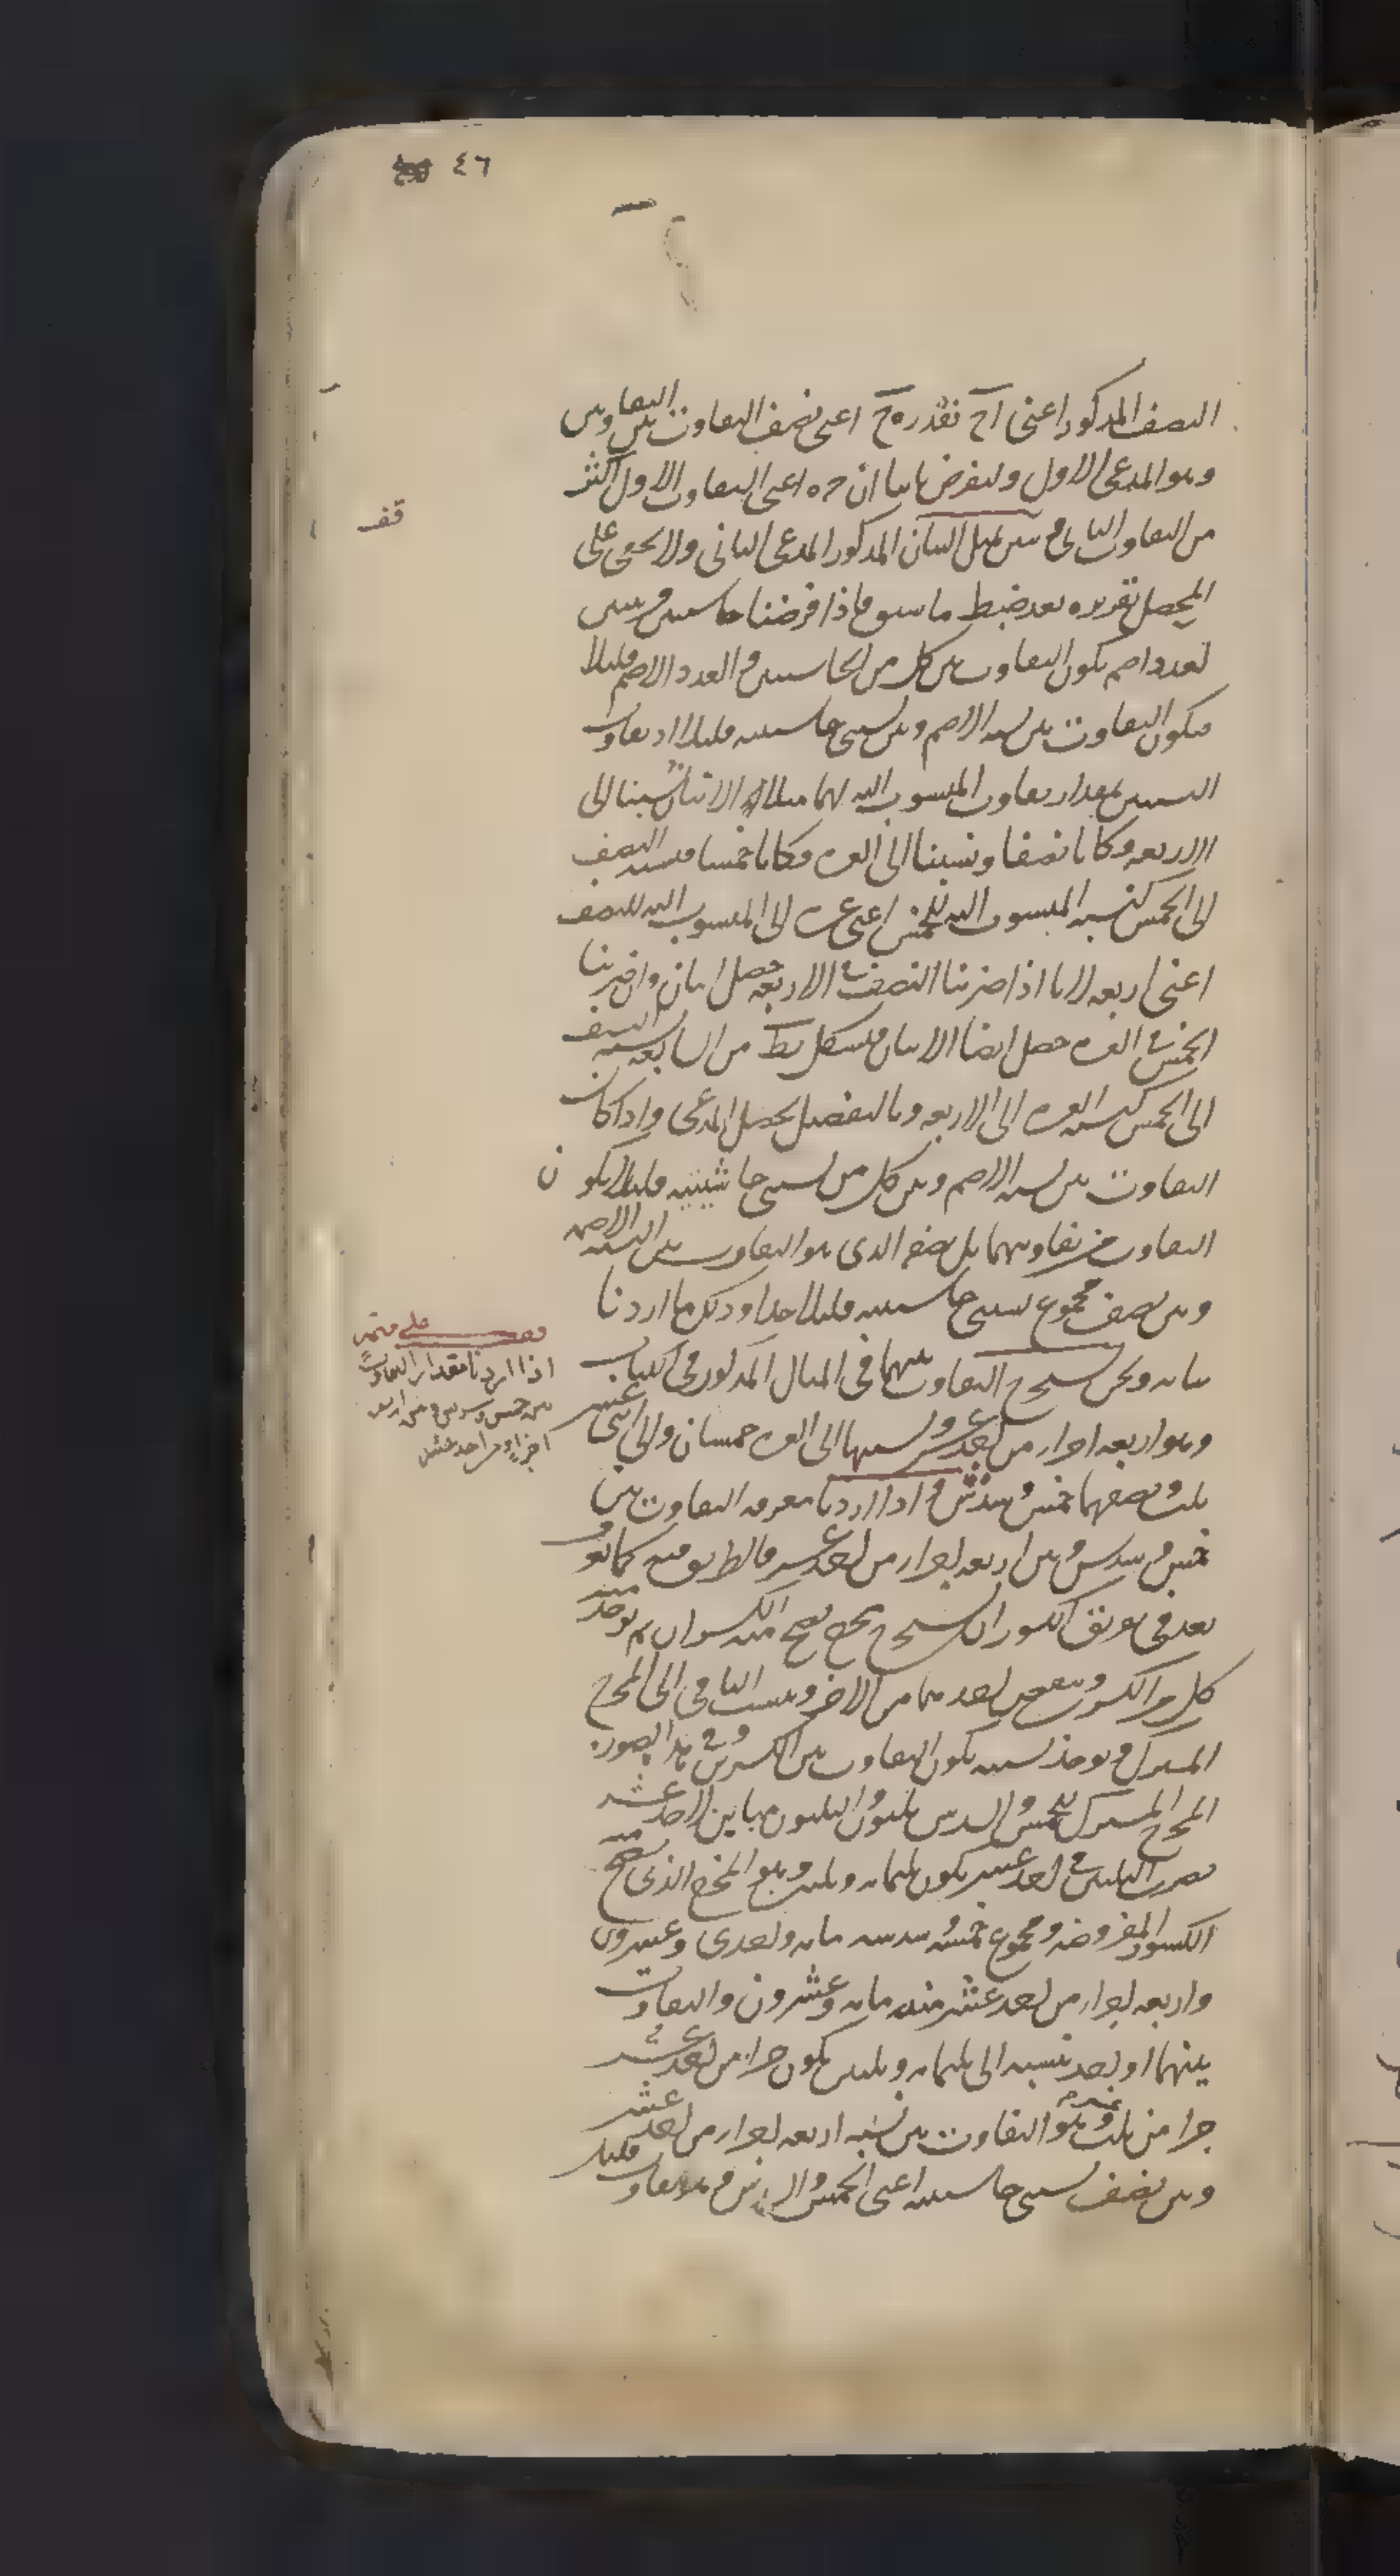 ٤٦
النصف المذكور اعنى اح نقدر ه ح اعنى نصف التفاوت بين التفاوتين
وهو المدعى الاول ولنفرض ثانيا ان ح ه اعنى التفاوت الاول اكثر
قف
من التفاوت الثانى فتبين بمثل البيان المذكور المدعى الثانى ولا يخفى على
المحصل تقريره بعد ضبط ما سبق فاذا فرضنا حاشيتين قريبتين
لعدد اصم يكون التفاوت بين كل من الحاشيتين والعدد الاصم قليلا
فيكون التفاوت بين نسبة الاصم وبين نسبتى حاشيتيه قليلا اذ تفاوت
النسبتين بمقدار تفاوت المنسوب اليه لهما مثلا الاثنان نسبنا الى
الاربعة وكانا نصفا ونسبنا الى العشرة فكانا خمسا فنسبة النصف
الى الخمس كنسبة المنسوب اليه للخمس اعنى عشرة الى المنسوب اليه للنصف
اعنى اربعة لانا اذا ضربنا النصف فى الاربعة حصل اثنان وان ضربنا
الخمس فى العشرة حصل ايضا الاثنان فبشكل يط من السابعة نسبة النصف
الى الخمس كنسبة العشرة الى الاربعة وبالتفصيل يحصل المدعى واذا كان
التفاوت بين نسبة الاصم وبين كل من نسبتى حاشيتيه قليلا يكون
التفاوت بين تفاوتيهما بل نصفه الذى هو التفاوت بين النسبة الاصمية
وبين نصف مجموع نسبتى حاشيتيه قليلا جدا وذلك ما اردنا
بيانه ونحن نستخرج التفاوت بينهما فى المثال المذكور فى الكتاب
وهو اربعة اجزاء من احد عشر ونسبتها الى العشرة خمسان والى اثنى عشر
ثلث ونصفهما خمس وسدس فاذا اردنا معرفة التفاوت بين
خمس وسدس وبين اربعة اجزاء من احد عشر فالطريق فيه كما نقول
بعد فى تفريق الكسور ان نستخرج مخرج يصح منه الكسران ثم يوخذ منه
كل من الكسرين وينقص احدهما من الاخر وينسب الباقى الى المخرج
المشترك فيوخذ نسبته يكون التفاوت بين الكسرين وفى هذه الصورة
المخرج المشترك للخمس والسدس ثلثون والثلثون مباين لاحد عشر
نضرب الثلثين فى احد عشر يكون ثلثمائة وثلثين وهو المخرج الذى يصح منه
الكسور المفروضة ومجموع خمسه وسدسه مائة واحدى وعشرون
واربعة اجزاء من احد عشر منه مائة وعشرون والتفاوت
بينهما واحد نسبته الى ثلثمائة وثلثين يكون جزا من احد عشر
جزا من ثلث عشر وهو التفاوت بين نسبة اربعة اجزاء من احد عشر
وبين نصف نسبتى حاشيتيه اعنى الخمس والسدس وهو تفاوت قليل
اذا اردنا مقدار التفاوت
بين خمس وسدس وبين اربعة
اجزاء من احد عشر